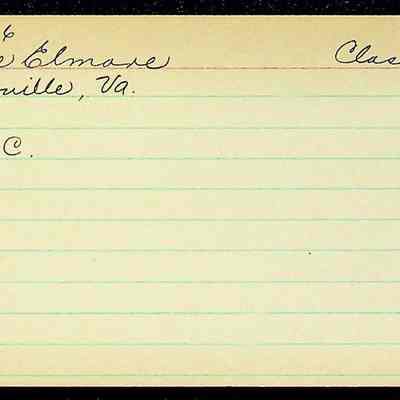 6
e Elmore Clas
ville, Va.
C.